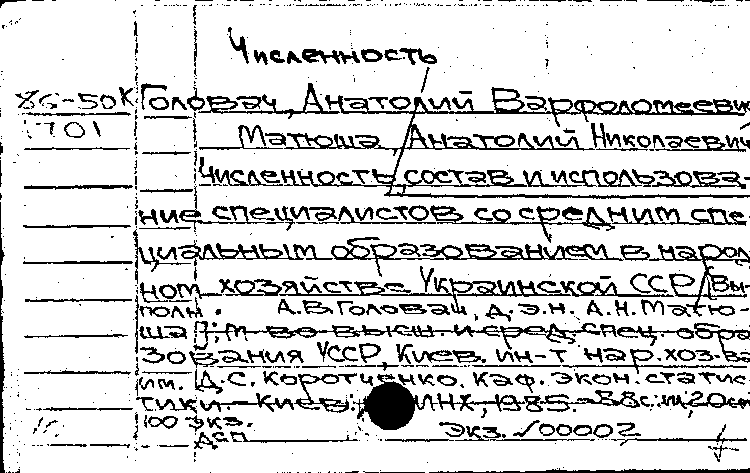 Численность
86-50К Головач, Анатолий Варфоломееви
1701 Матюша, Анатолий Николаевич
Численность, состав и использова-
ние специалистов со средним спе
циальным образованием в народ
ном хозяйстве Украинской ССР / Вы-
полн. А.В. Головач, д.э.н. А.Н. Матю-
ша]; М-во высш. и сред. спец. обра
зования УССР, Киев. ин-т нар. хоз-ва
им. Д.С. Коротченко. Каф. экон. статис
тики. - Киев: ИНХ, 1985. - 88с.; 20см
100 экз.
ДСП Экз. √00002